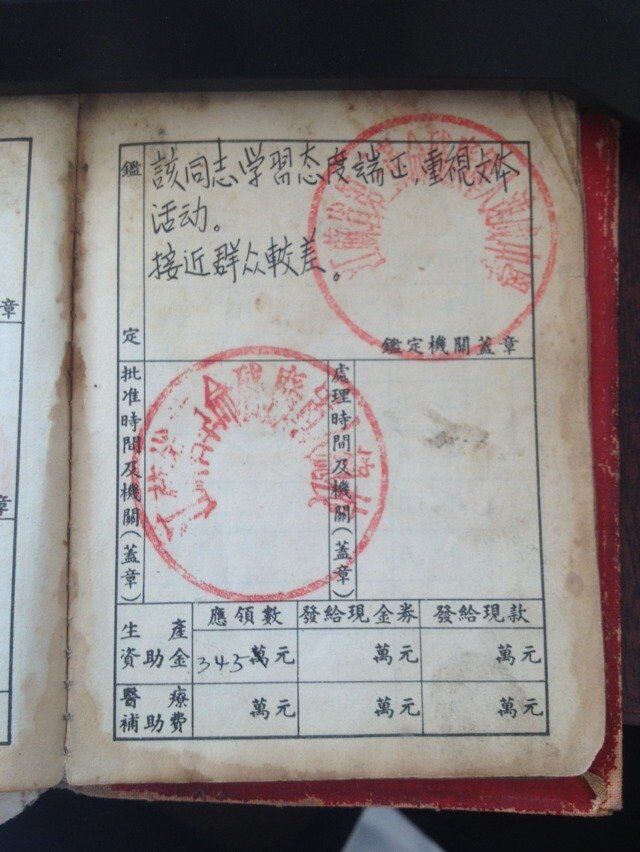 鑑定
該同志学習态度端正,重視文体
活动。
接近群众較差。
鑑定機關蓋章
批准時間及機關(蓋章)
處理時間及機關(蓋章)
應領數 發給現金券 發給現款
生產資助金 345萬元 萬元 萬元
醫療補助費 萬元 萬元 萬元
章
章